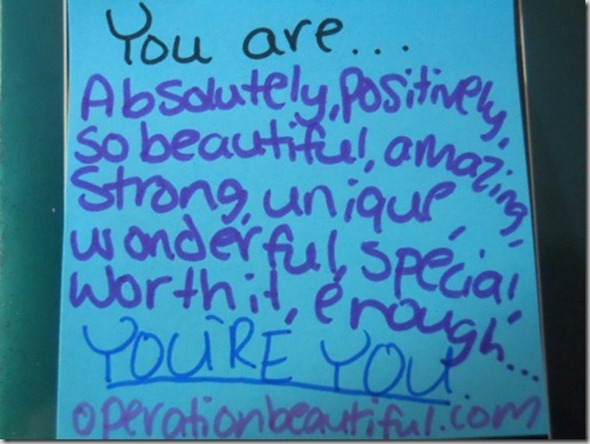 You are...
Absolutely, positively,
so beautiful, amazing,
Strong, unique,
wonderful, special,
Worth it, enough...
YOU'RE YOU.
operationbeautiful.com